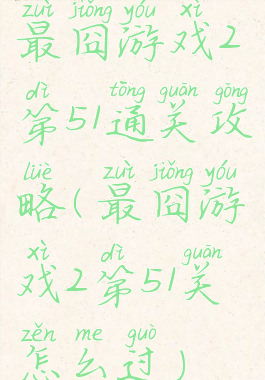 zuì jiǒng yóu xì
最囧游戏2
dì tōng guān gōng
第51通关攻
lüè zuì jiǒng yóu
略(最囧游
xì dì guān
戏2第51关
zěn me guò
怎么过)